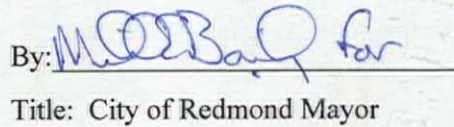 By: for
Title: City of Redmond Mayor